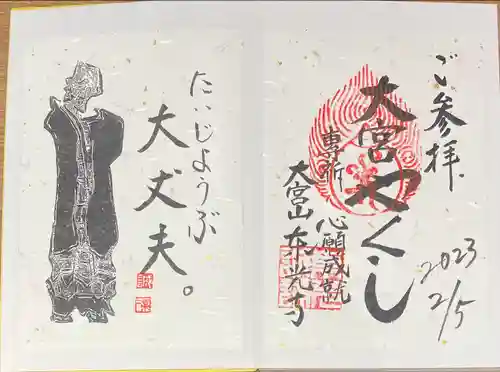 ご参拝
大宮やくし
専祈
心願成就
大宮山東光寺
2023
2/5
だいじょうぶ
大丈夫。